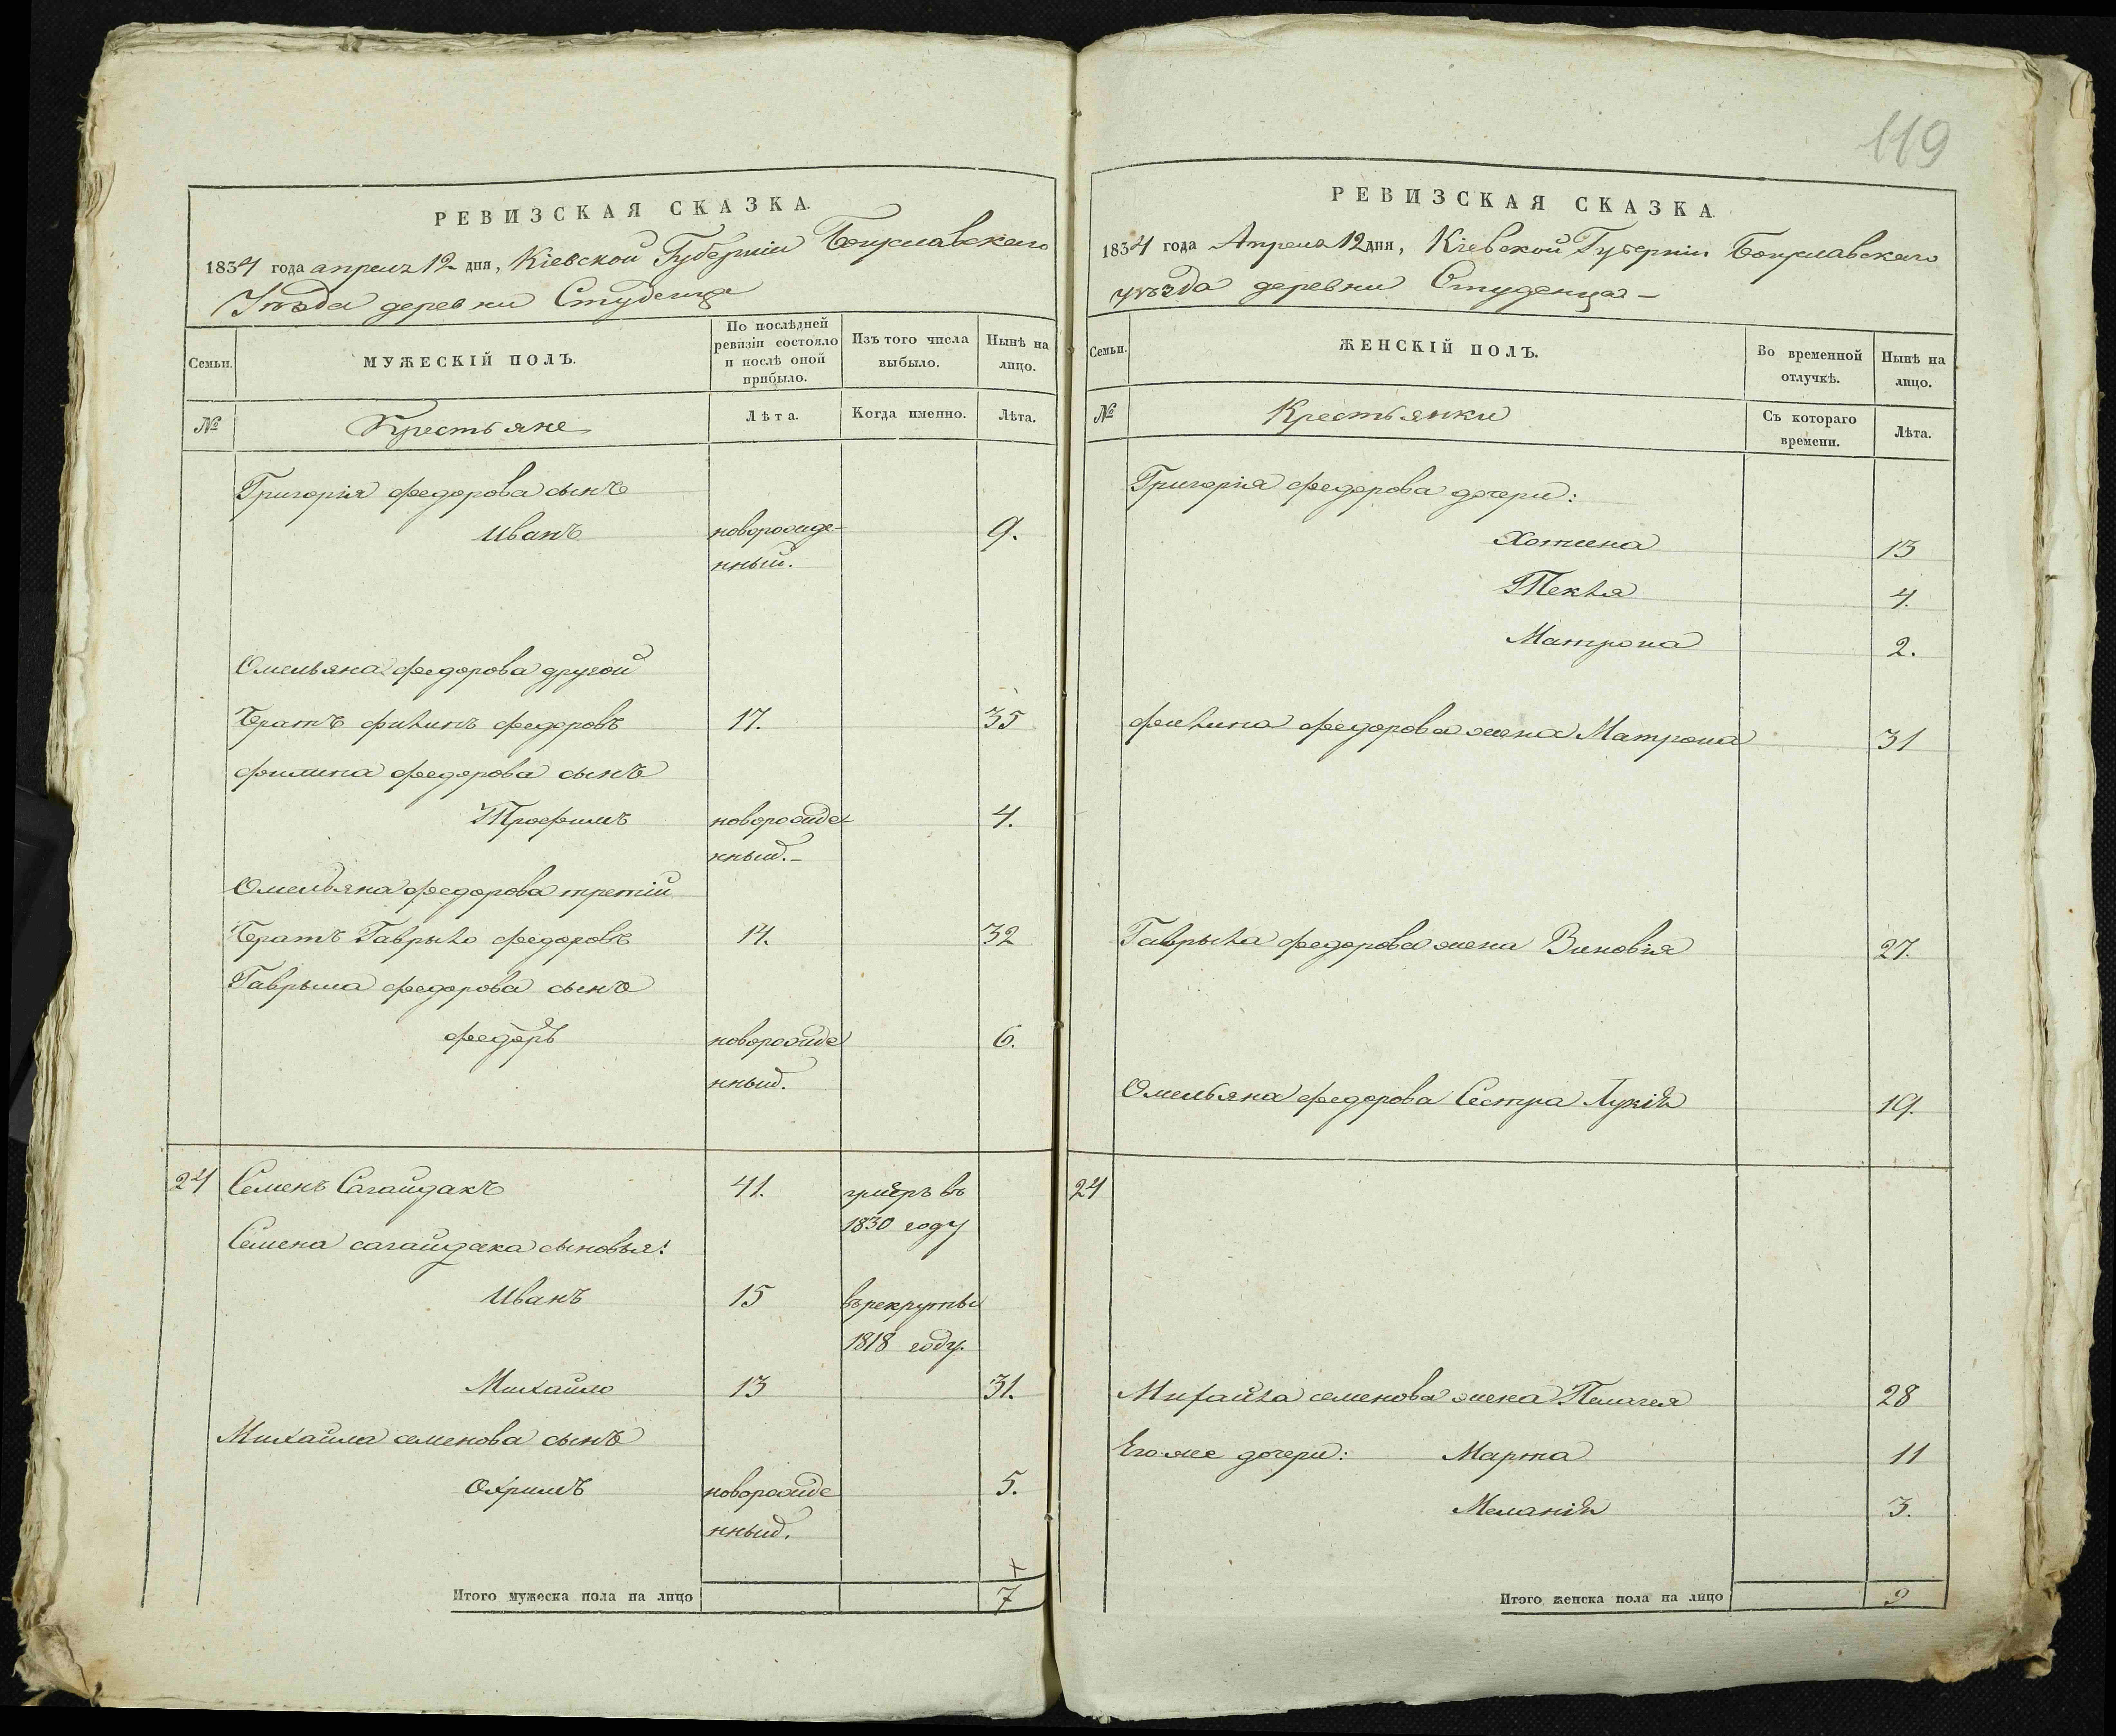 РЕВИЗСКАЯ СКАЗКА.
1834 года апреля 12 дня, Кіевской Губерніи Богуславскаго
Уѣзда деревни Студенца
Семьи.
МУЖЕСКІЙ ПОЛЪ.
По послѣдней
ревизіи состояло
и послѣ оной
прибыло.
Изъ того числа
выбыло.
Нынѣ на
лицо.
№
Крестьяне
Лѣта.
Когда именно.
Лѣта.
Григорія федорова сынъ
Иванъ новорожде- 9.
нный.
Омельяна федорова другой
братъ филипъ федоровъ 17. 35
филипа федорова сынъ
Трофимъ новорожде 4.
нный.-
Омельяна федорова третій
братъ Гаврыло федоровъ 14. 32
Гаврыла федорова сынъ
федоръ новорожде 6.
нный.
24 Семенъ Сагайдакъ 41. умеръ въ
1830 году
Семена сагайдака сыновья:
Иванъ 15 въ рекруты
1818 году.
Михайло 13 31.
Михайла семенова сынъ
Охримъ новорожде 5.
нный.
+
Итого мужеска пола на лицо 7
119
РЕВИЗСКАЯ СКАЗКА
1834 года Апреля 12 дня, Кіевской Губерніи Богуславскаго
уѣзда деревни Студенца -
Семьи.
ЖЕНСКІЙ ПОЛЪ.
Во временной
отлучкѣ.
Нынѣ на
лицо.
№
Крестьянки
Съ котораго
времени.
Лѣта.
Григорія федорова дочери:
Хотина 13
Текля 4.
Матрона 2.
филипа федорова жена Матрона 31
Гаврыла федорова жена Зиновія 27.
Омельяна федорова Сестра Лукія 19.
24
Михайла семенова жена Пелагея 28
Его же дочери: Марта 11
Меланія 3.
Итого женска пола на лицо 9